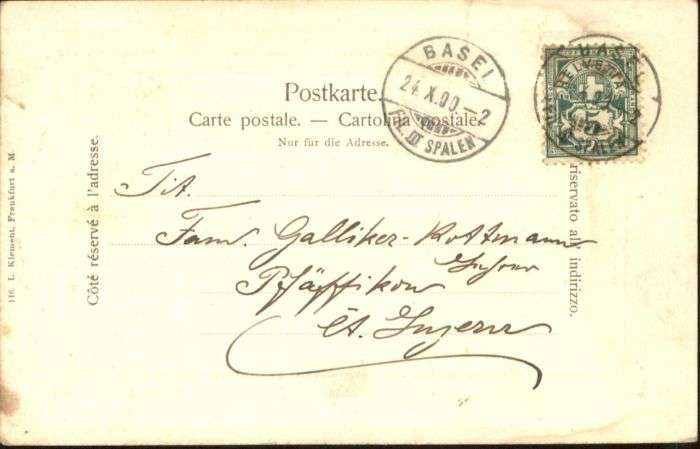 Postkarte.
Carte postale. — Cartolina postale.
Nur für die Adresse.
BASEL
24.X.00.–2
FIL. III SPALEN
HELVETIA
5
SPALEN
Côté réservé à l'adresse.
116 L. Klement, Frankfurt a. M
riservato all' indirizzo.
Tit.
Fam. Galliker-Rottmann
Pfäffikon
Ct. Luzern